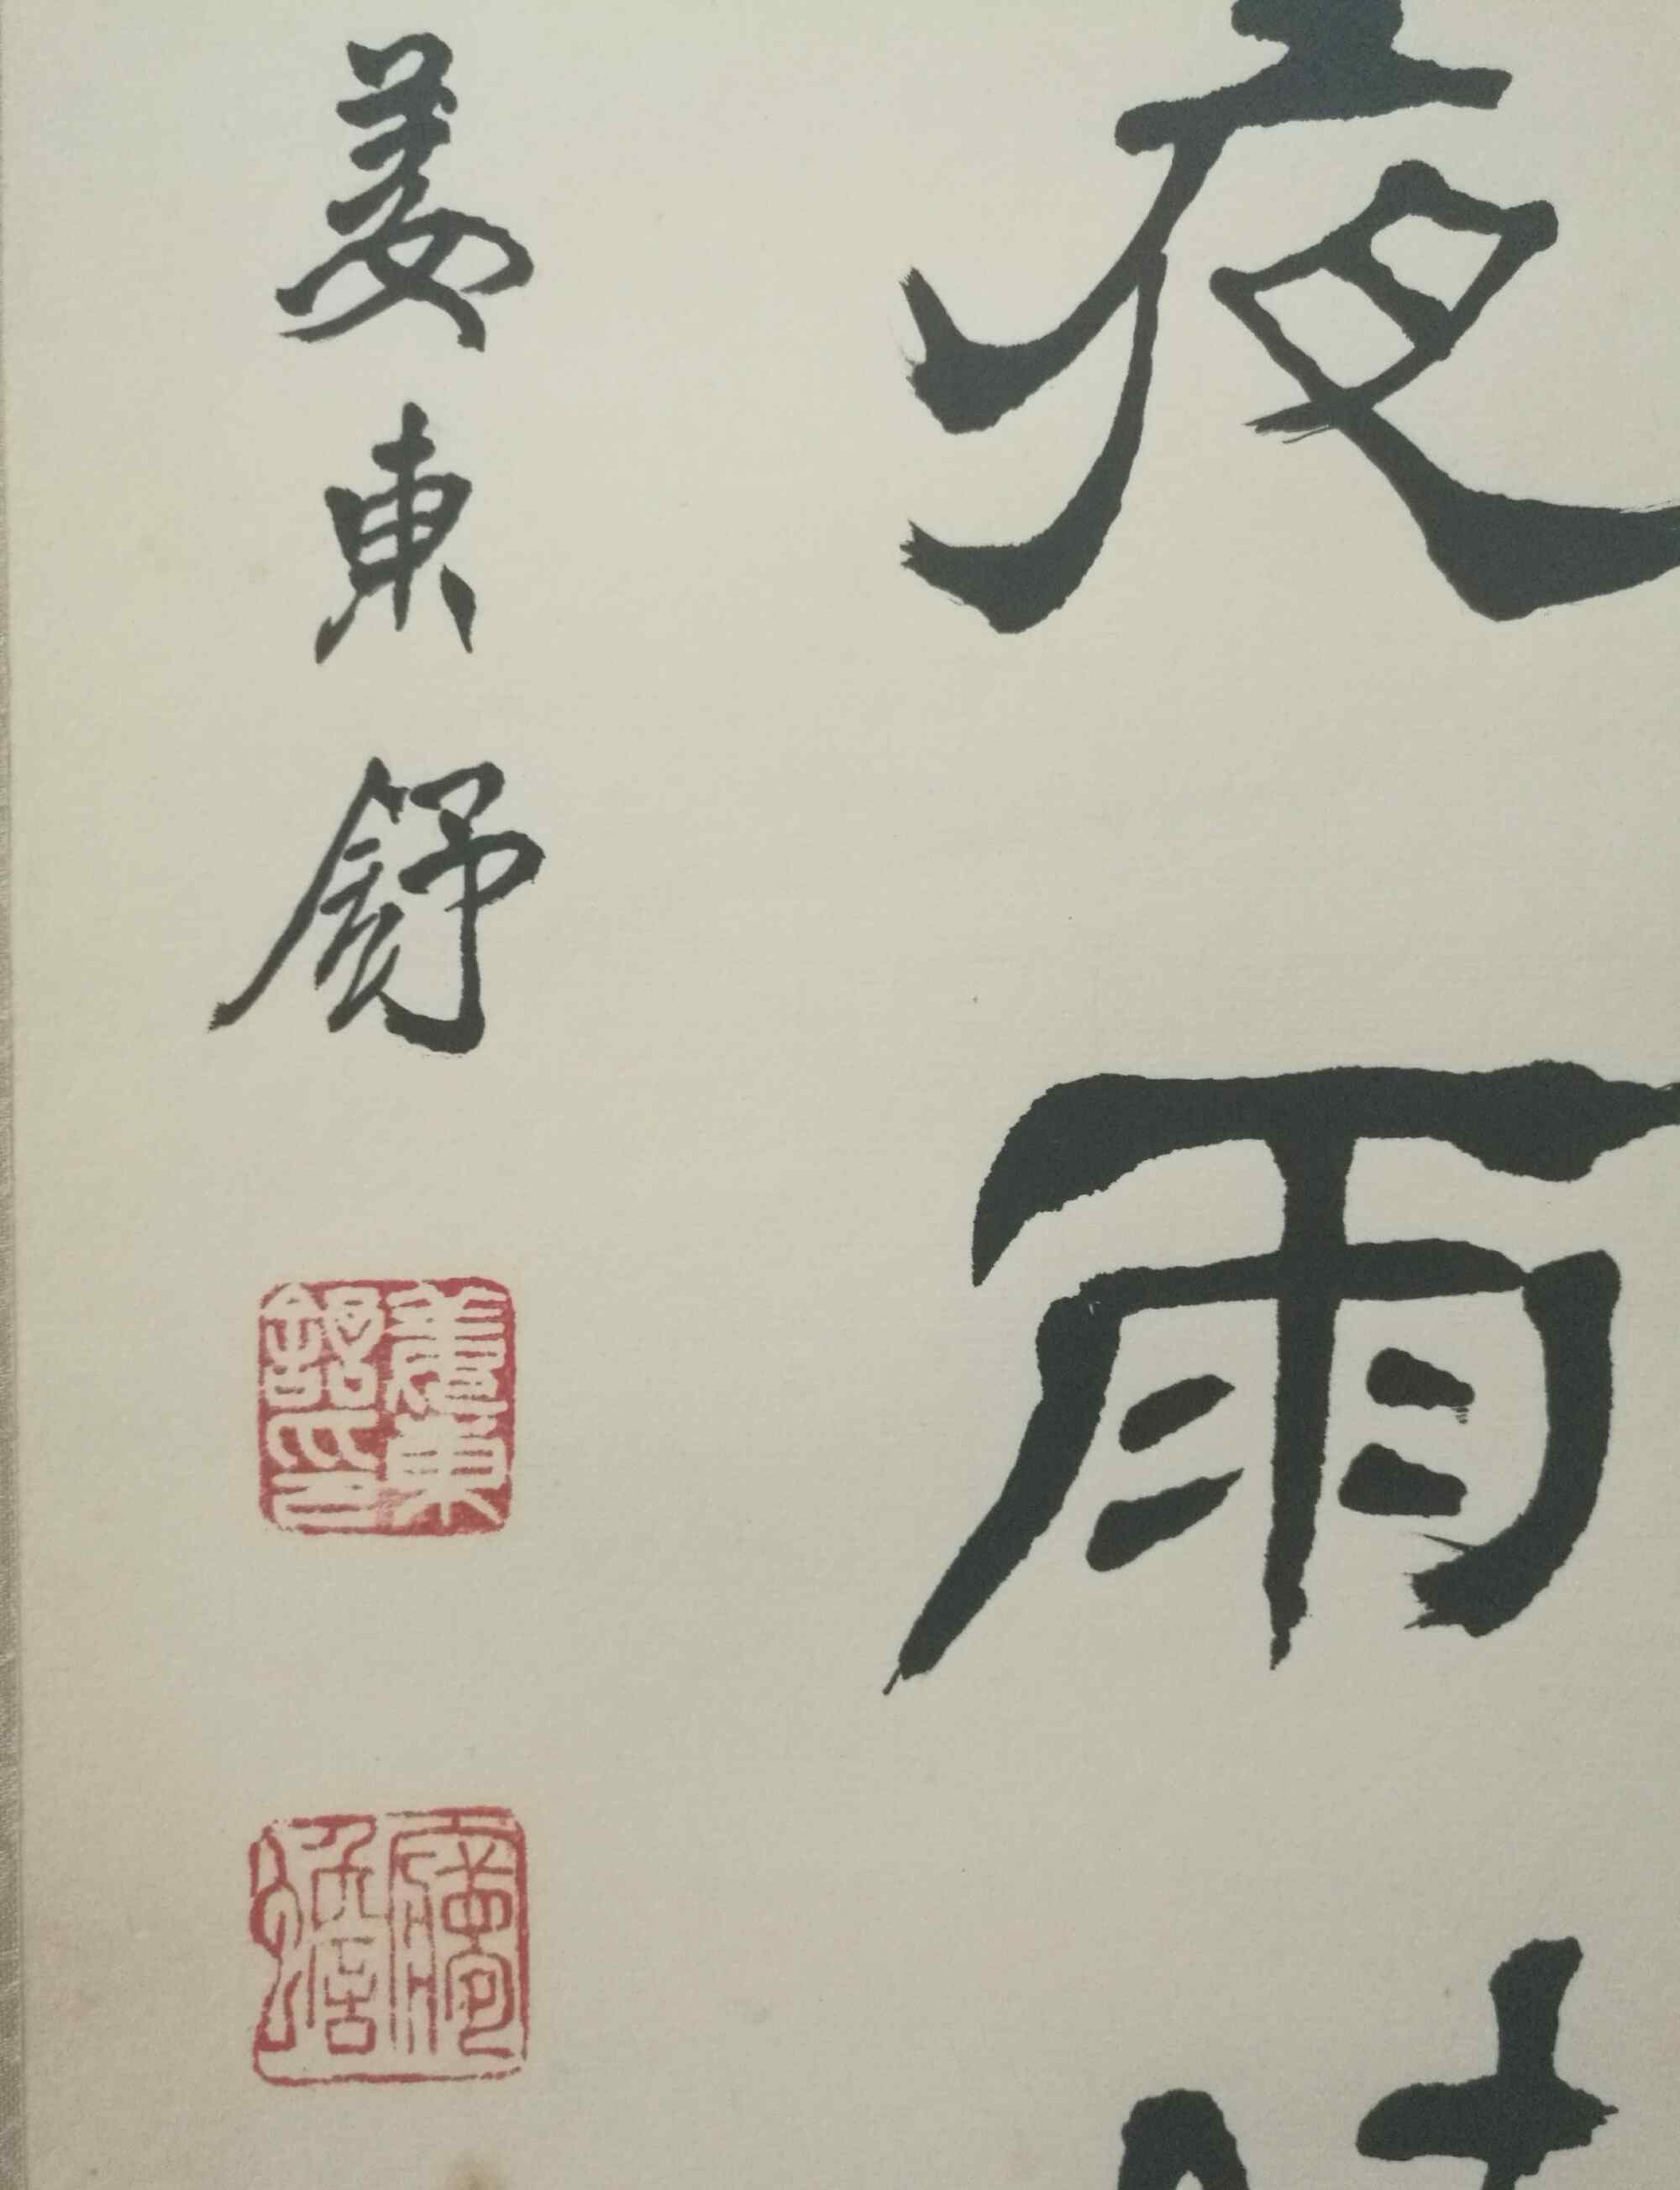 夜雨時
姜東舒
姜東舒印